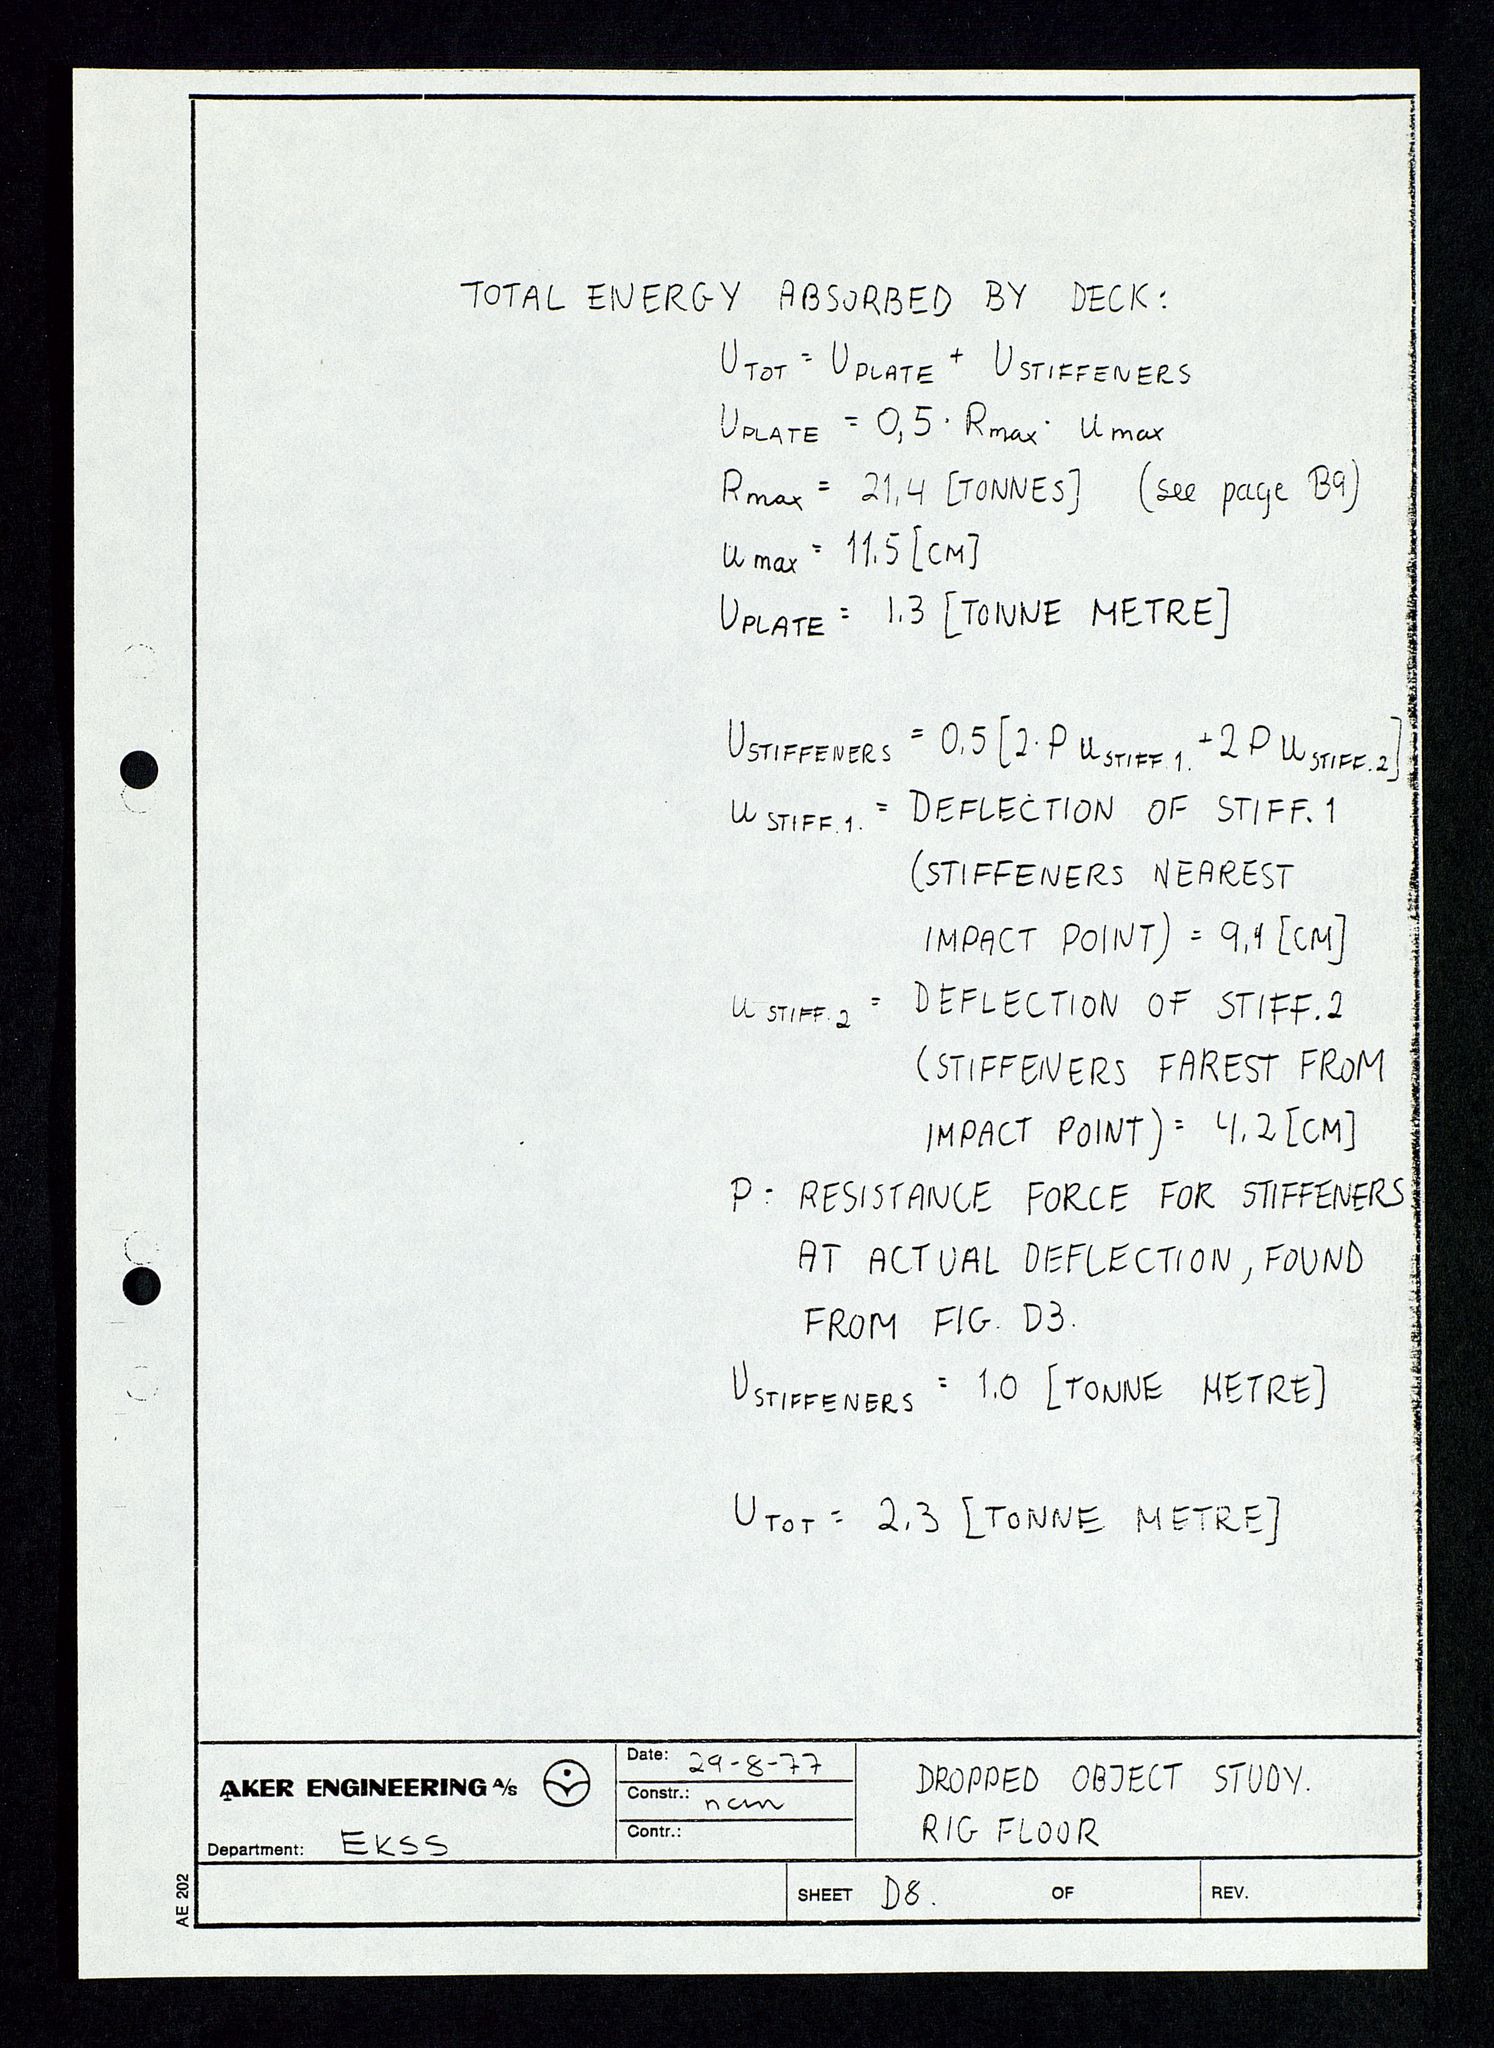 TOTAL ENERGY ABSORBED BY DECK:
U TOT = U PLATE + U STIFFENERS
U PLATE = 0,5 · R max · u max
R max = 21,4 [TONNES] (see page B9)
u max = 11.5 [CM]
U PLATE = 1.3 [TONNE METRE]
U STIFFENERS = 0.5 [2 · P u STIFF.1. + 2 P u STIFF.2]
u STIFF.1. = DEFLECTION OF STIFF.1
(STIFFENERS NEAREST
IMPACT POINT) = 9,4 [CM]
u STIFF.2 = DEFLECTION OF STIFF.2
(STIFFENERS FAREST FROM
IMPACT POINT) = 4.2 [CM]
P = RESISTANCE FORCE FOR STIFFENERS
AT ACTUAL DEFLECTION, FOUND
FROM FIG. D3.
U STIFFENERS = 1.0 [TONNE METRE]
U TOT = 2.3 [TONNE METRE]
AKER ENGINEERING A/S
Department: EKSS
Date: 29-8-77
Constr.: ncm
Contr.:
DROPPED OBJECT STUDY.
RIG FLOOR
SHEET D8. OF REV.
AE 202